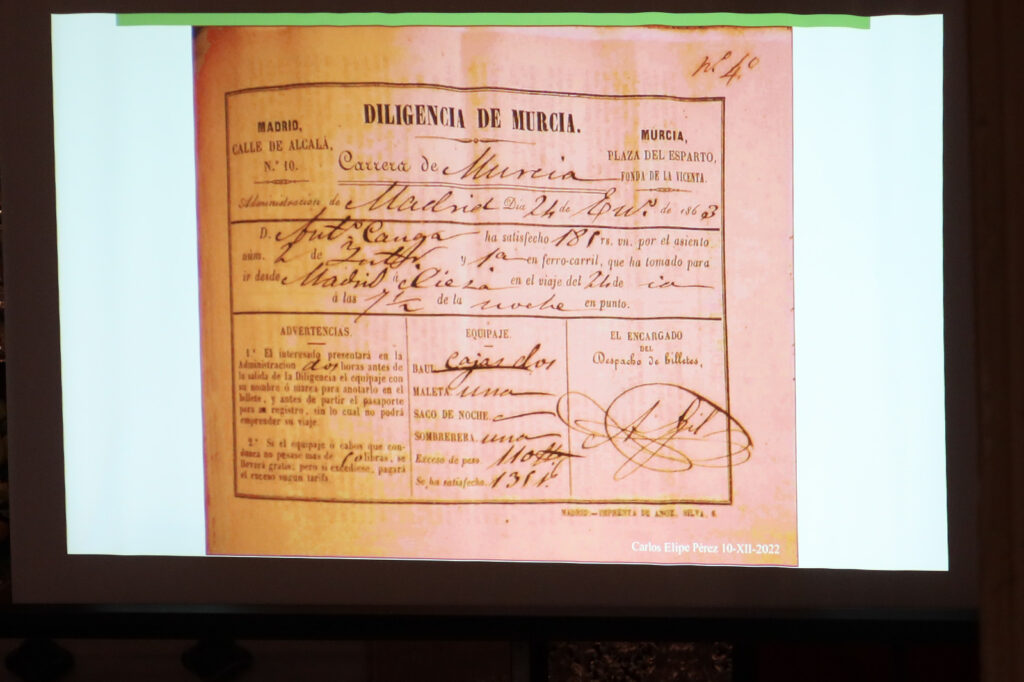 nº 4º
DILIGENCIA DE MURCIA.
MADRID,
CALLE DE ALCALÁ,
N.º 10.
Carrera de Murcia
MURCIA,
PLAZA DEL ESPARTO,
FONDA DE LA VICENTA.
Administracion de Madrid Dia 24 de En.º de 1863
D. Ant.º Canga ha satisfecho 181 rs. vn. por el asiento
núm. 2 de y 1ª en ferro-carril, que ha tomado para
ir desde Madrid á Cieza en el viaje del 24 de
á las 7 ½ de la noche en punto.
ADVERTENCIAS.
1.ª El interesado presentará en la
Administracion dos horas antes de
la salida de la Diligencia el equipaje con
su nombre ó marca para anotarlo en el
billete, y antes de partir el pasaporte
para su registro, sin lo cual no podrá
emprender su viaje.
2.ª Si el equipaje ó cabos que con-
duzca no pesase mas de libras, se
llevará gratis; pero si excediese, pagará
el exceso segun tarifa.
EQUIPAJE.
BAUL cajas dos
MALETA una
SACO DE NOCHE
SOMBRERERA una
Exceso de peso 110
Se ha satisfecho
EL ENCARGADO
DEL
Despacho de billetes,
A. Gil
MADRID.—IMPRENTA DE ANGE. SILVA, 6.
Carlos Elipe Pérez 10-XII-2022